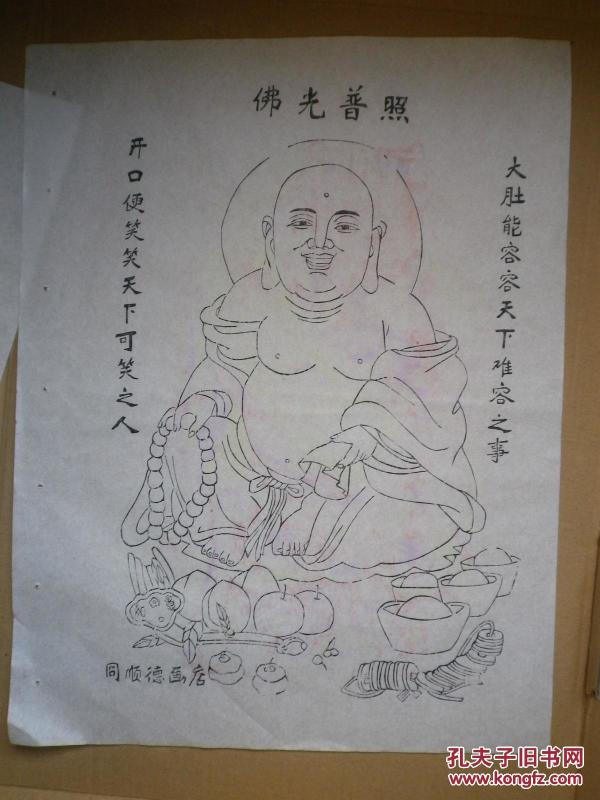 佛光普照
大肚能容容天下难容之事
开口便笑笑天下可笑之人
同顺德画店
孔夫子旧书网
www.kongfz.com